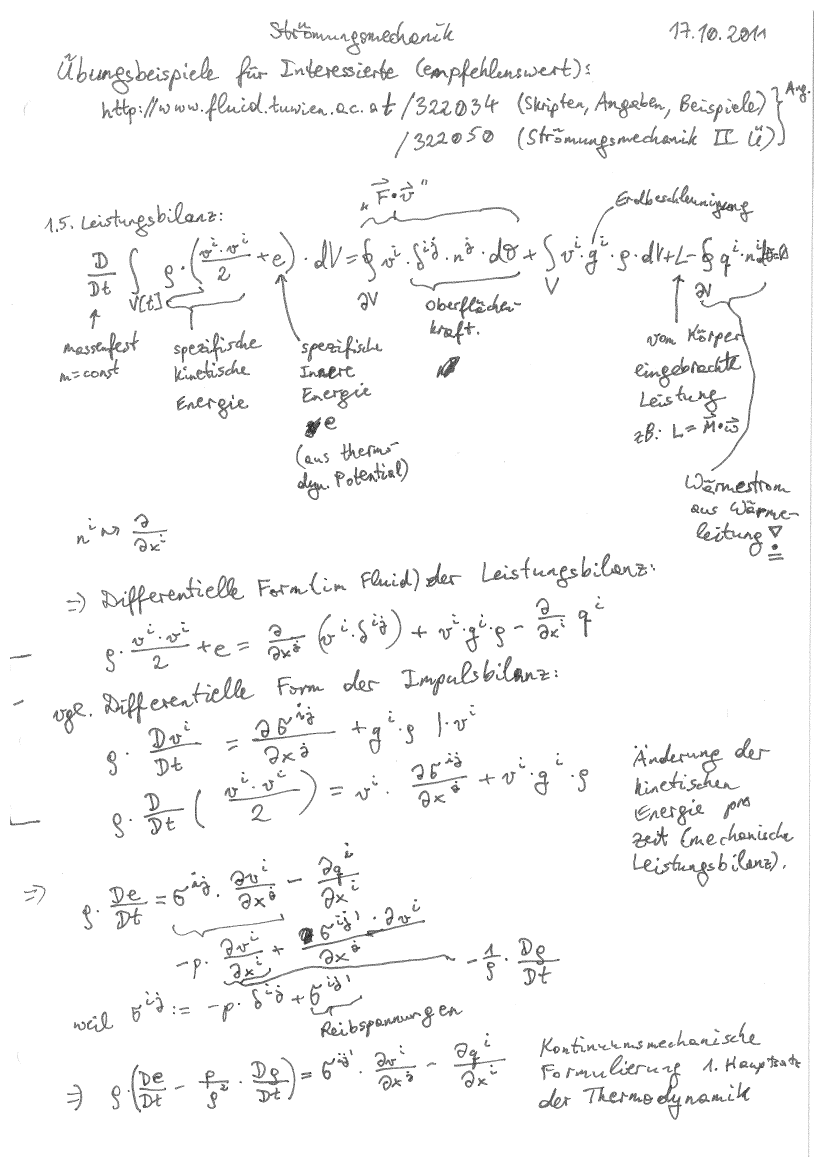 Strömungsmechanik 17.10.2011
Übungsbeispiele für Interessierte (empfehlenswert):
http://www.fluid.tuwien.ac.at/322034 (Skripten, Angaben, Beispiele) } Ang.
/322050 (Strömungsmechanik II Ü)
„F⃗•v⃗"
Erdbeschleunigung
1.5. Leistungsbilanz:
D/Dt ∫_V[t] ρ·(v^i·v^i/2 + e)·dV = ∮_∂V v^i·δ^ij·n^j·dσ + ∫_V v^i·g^i·ρ·dV + L - ∮_∂V q^i·n^i
massenfest
m=const
spezifische
kinetische
Energie
spezifische
Innere
Energie
e
(aus thermo-
dyn. Potential)
Oberflächen
kraft.
vom Körper
eingebrachte
Leistung
zB: L = M⃗•ω⃗
Wärmestrom
aus Wärme-
leitung !
n^i ↝ ∂/∂x^i
⇒ Differentielle Form (im Fluid) der Leistungsbilanz:
ρ·v^i·v^i/2 + e = ∂/∂x^j (v^i·δ^ij) + v^i·g^i·ρ - ∂/∂x^i q^i
vgl. Differentielle Form der Impulsbilanz:
ρ·Dv^i/Dt = ∂σ^ij/∂x^j + g^i·ρ |·v^i
ρ·D/Dt (v^i·v^i/2) = v^i·∂σ^ij/∂x^j + v^i·g^i·ρ
Änderung der
kinetischen
Energie pro
Zeit (mechanische
Leistungsbilanz).
⇒ ρ·De/Dt = σ^ij·∂v^i/∂x^j - ∂q^i/∂x^i
-p·∂v^i/∂x^i + σ^ij'·∂v^i/∂x^j
-1/ρ·Dρ/Dt
weil σ^ij := -p·δ^ij + σ^ij'
Reibspannungen
⇒ ρ·(De/Dt - p/ρ²·Dρ/Dt) = σ^ij'·∂v^i/∂x^j - ∂q^i/∂x^i
Kontinuumsmechanische
Formulierung 1. Hauptsatz
der Thermodynamik